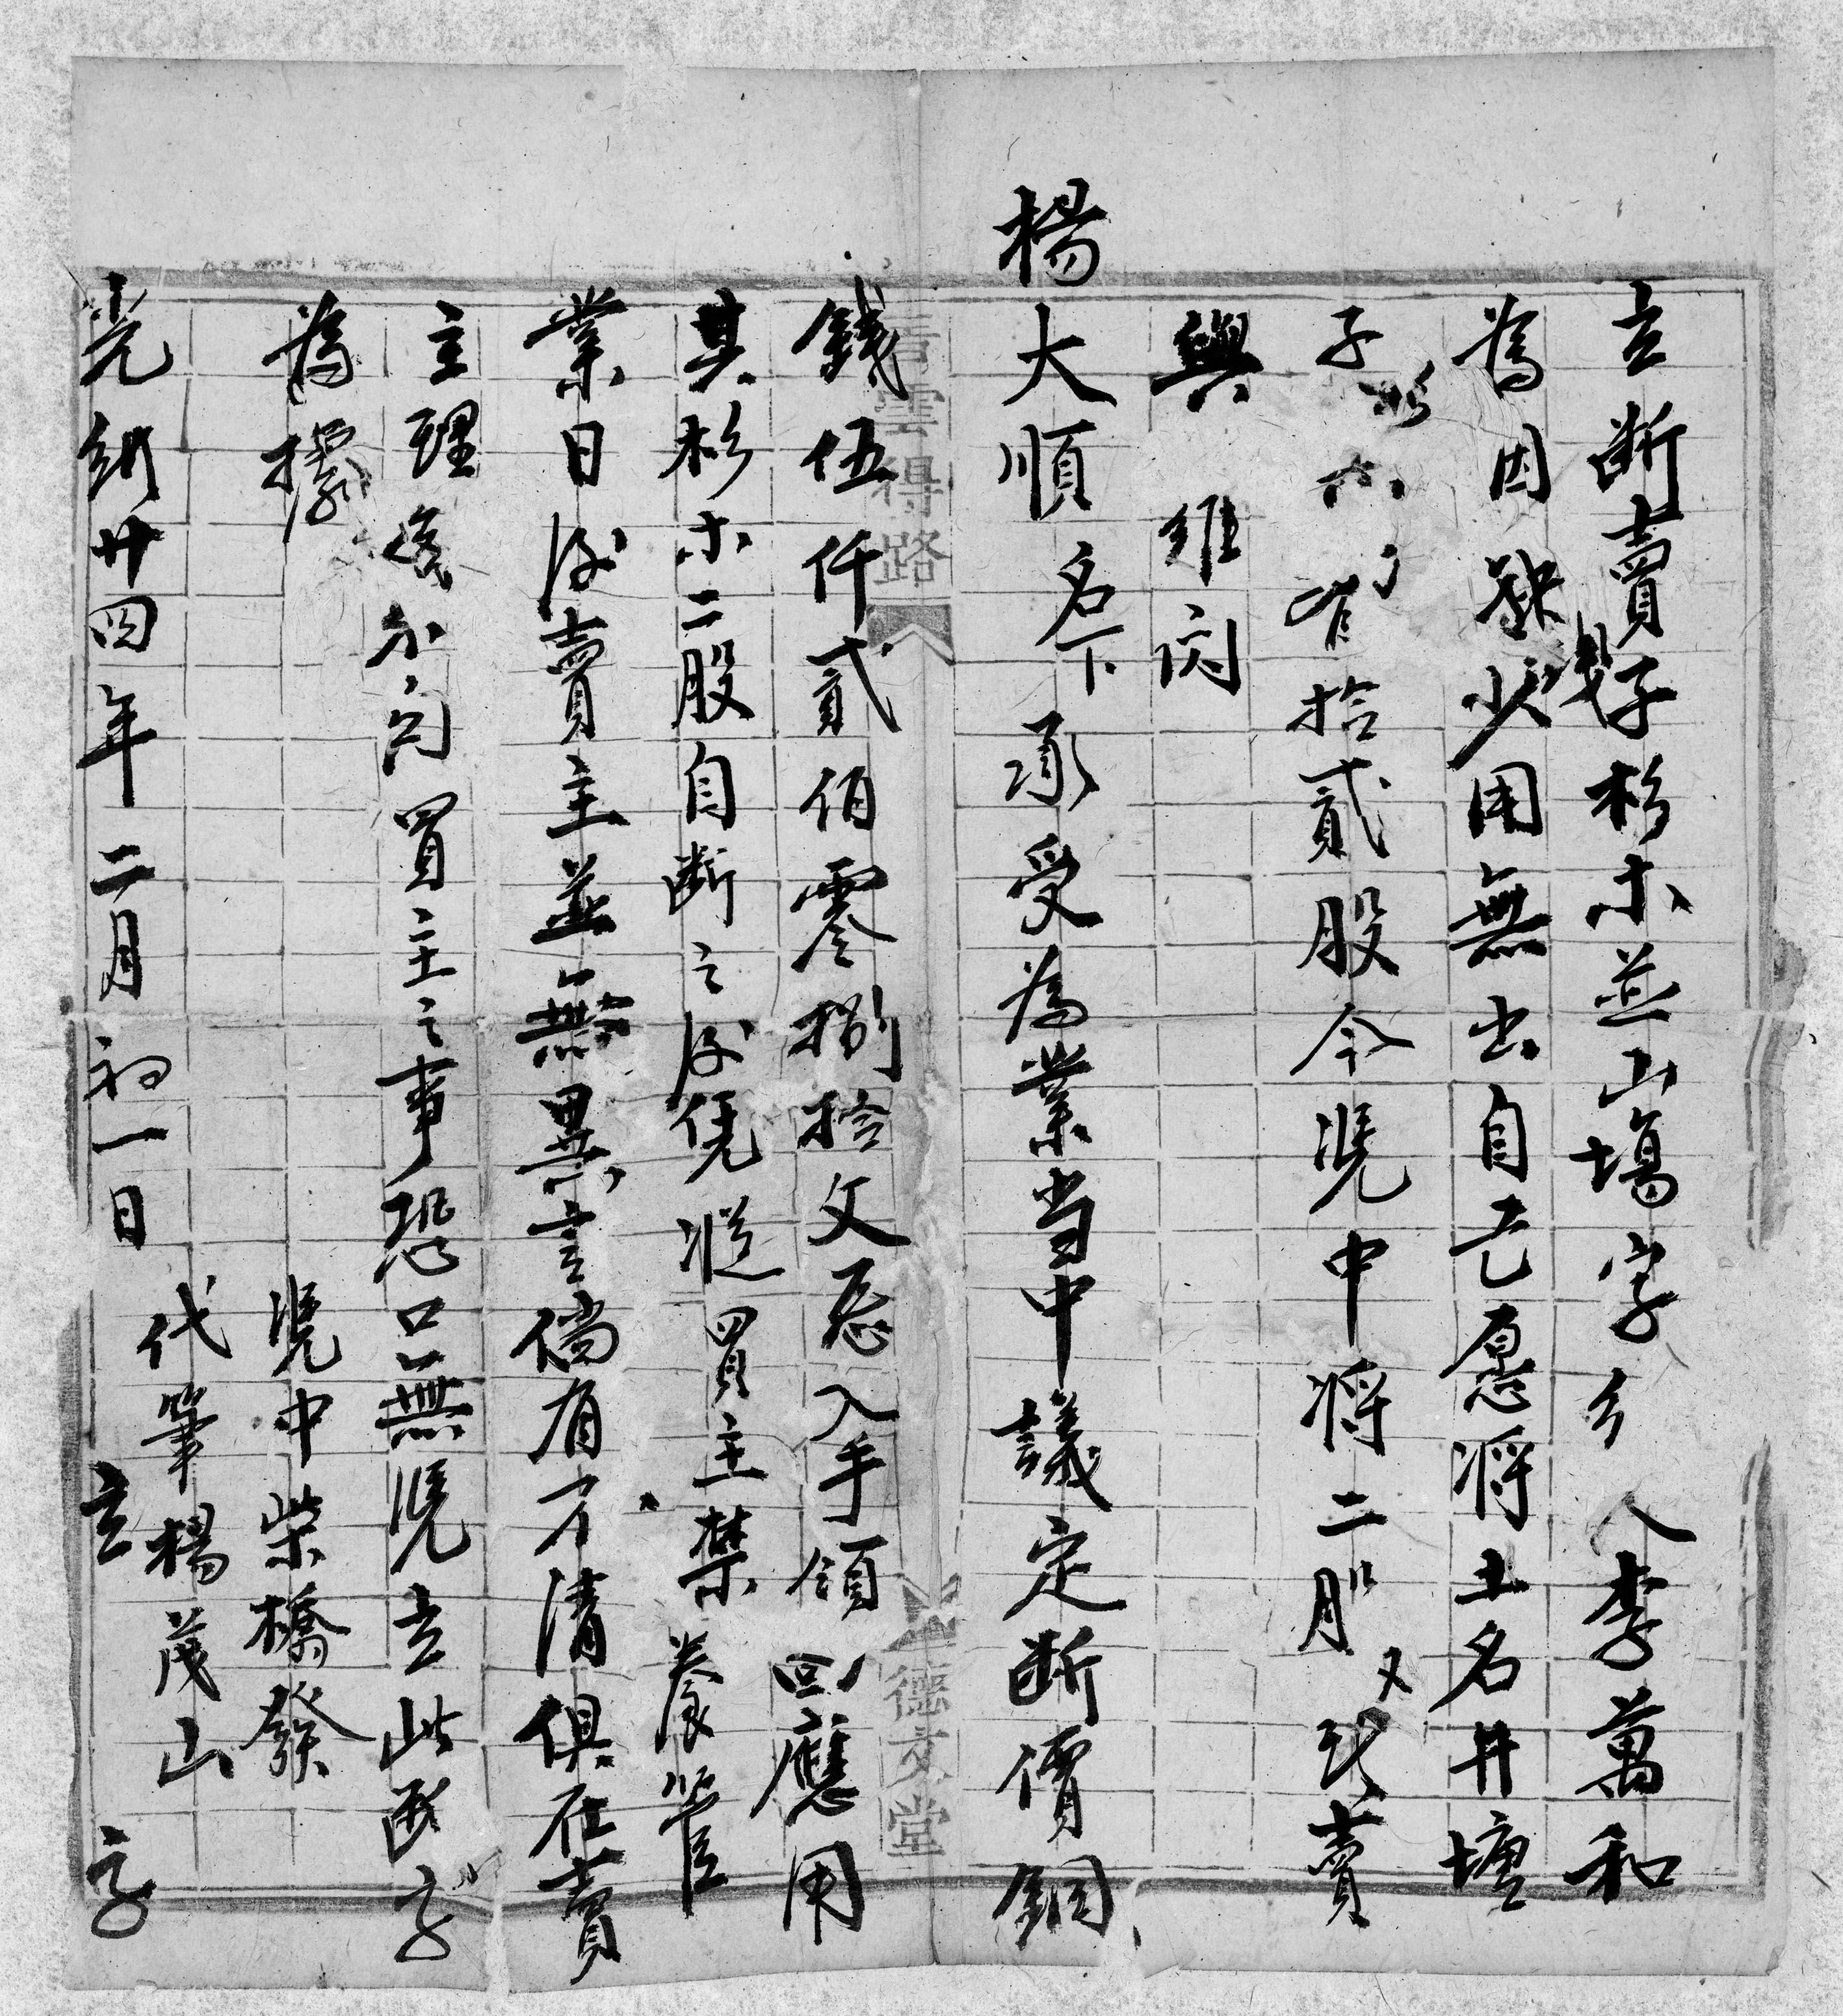 立断賣孑杉木並山塲字
人李萬和
為因缺少用無出自己愿將土名井壇
子
拾貳股今憑中將二股
賣
與
維
楊大順名下承受為業当中議定断價銅
錢伍仟貳佰零捌拾文
入手領回應用
其杉木二股自断之後凭從買主禁養管
業日後賣主並無異言倘有不清俱在賣
主理
買主之事恐口無憑立此断字
為據
憑中柴橋發
代筆楊茂山
光緒廿四年二月初一日立字
言雲得路
德文堂